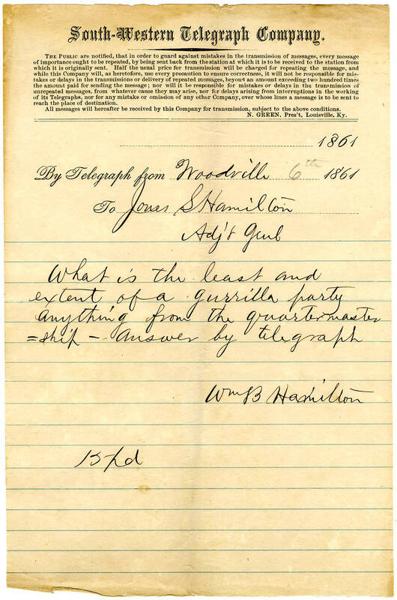 South-Western Telegraph Company.
THE PUBLIC are notified, that in order to guard against mistakes in the transmission of messages, every message
of importance ought to be repeated, by being sent back from the station at which it is to be received to the station from
which it is originally sent. Half the usual price for transmission will be charged for repeating the message, and
while this Company will, as heretofore, use every precaution to ensure correctness, it will not be responsible for mis-
takes or delays in the transmissions or delivery of repeated messages, beyond an amount exceeding two hundred times
the amount paid for sending the message; nor will it be responsible for mistakes or delays in the transmission of
unrepeated messages, from whatever cause they may arise, nor for delays arising from interruptions in the working
of its Telegraphs, nor for any mistake or omission of any other Company, over whose lines a message is to be sent to
reach the place of destination.
All messages will hereafter be received by this Company for transmission, subject to the above conditions.
N. GREEN, Pres't, Louisville, Ky.
1861
By Telegraph from Woodville 6th 1861
To Jones S Hamilton
Adj't Genl
What is the least and
extent of a gurrilla party
anything from the quartermaster
=ship - answer by telegraph
Wm B Hamilton